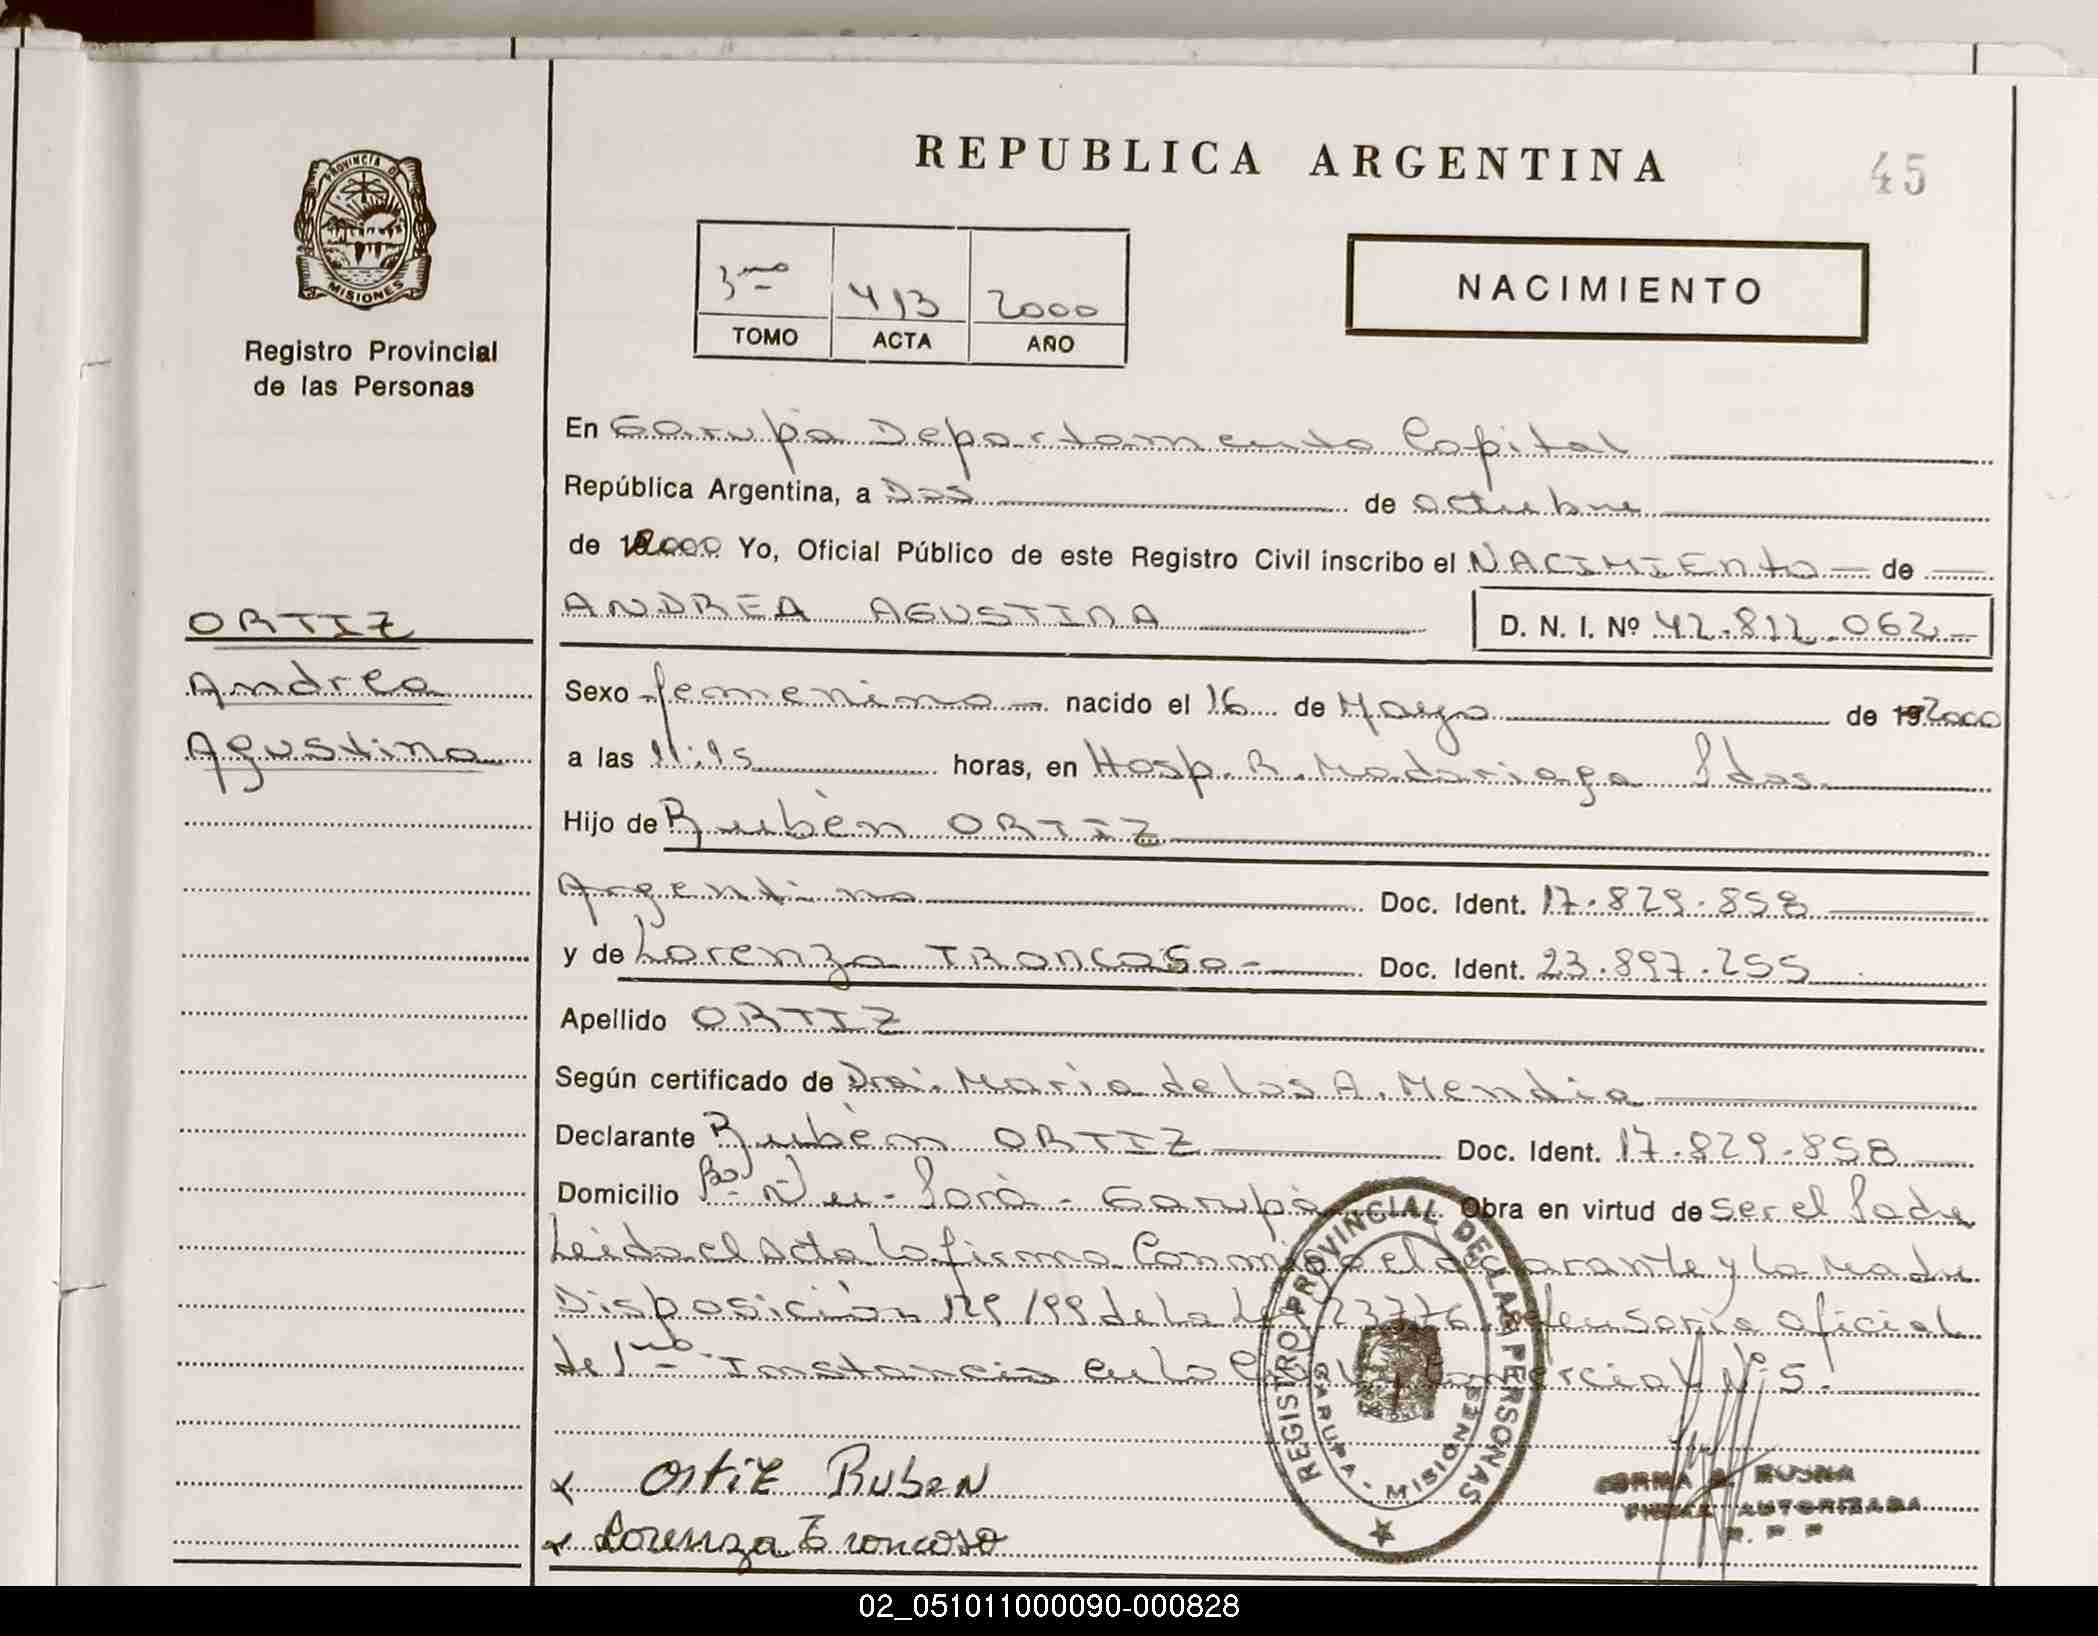 REPUBLICA ARGENTINA
45
PROVINCIA DE
MISIONES
Registro Provincial
de las Personas
3ero 413 2000
TOMO ACTA AÑO
NACIMIENTO
En Garupa Departamento Capital
República Argentina, a Dos de octubre
de 2000 Yo, Oficial Público de este Registro Civil inscribo el NACIMIENTO de
ANDREA AGUSTINA D. N. I. Nº 42.812.062
ORTIZ
Andrea
Agustina
Sexo femenino nacido el 16 de Mayo de 192000
a las 11:15 horas, en Hosp. R. Madariaga Pdas.
Hijo de Rubèn ORTIZ
Argentino Doc. Ident. 17.829.858
y de Lorenza TRONCOSO Doc. Ident. 23.897.255
Apellido ORTIZ
Según certificado de Dra. Maria de los A. Mendia
Declarante Rubèn ORTIZ Doc. Ident. 17.829.858
Domicilio Bº Ñu-Porà-Garupà Obra en virtud de Ser el Padre
Leida el Acta la firma Conmigo el declarante y la Madre
Disposición 129/99 de la Ley 23776 defensoria oficial
de 1ra Instancia en lo Civil y Comercial Nº 5.
x Ortiz Ruben
x Lorenza Troncoso
REGISTRO PROVINCIAL DE LAS PERSONAS
GARUPA - MISIONES
FIRMA AUTORIZADA
R. P. P
02_051011000090-000828